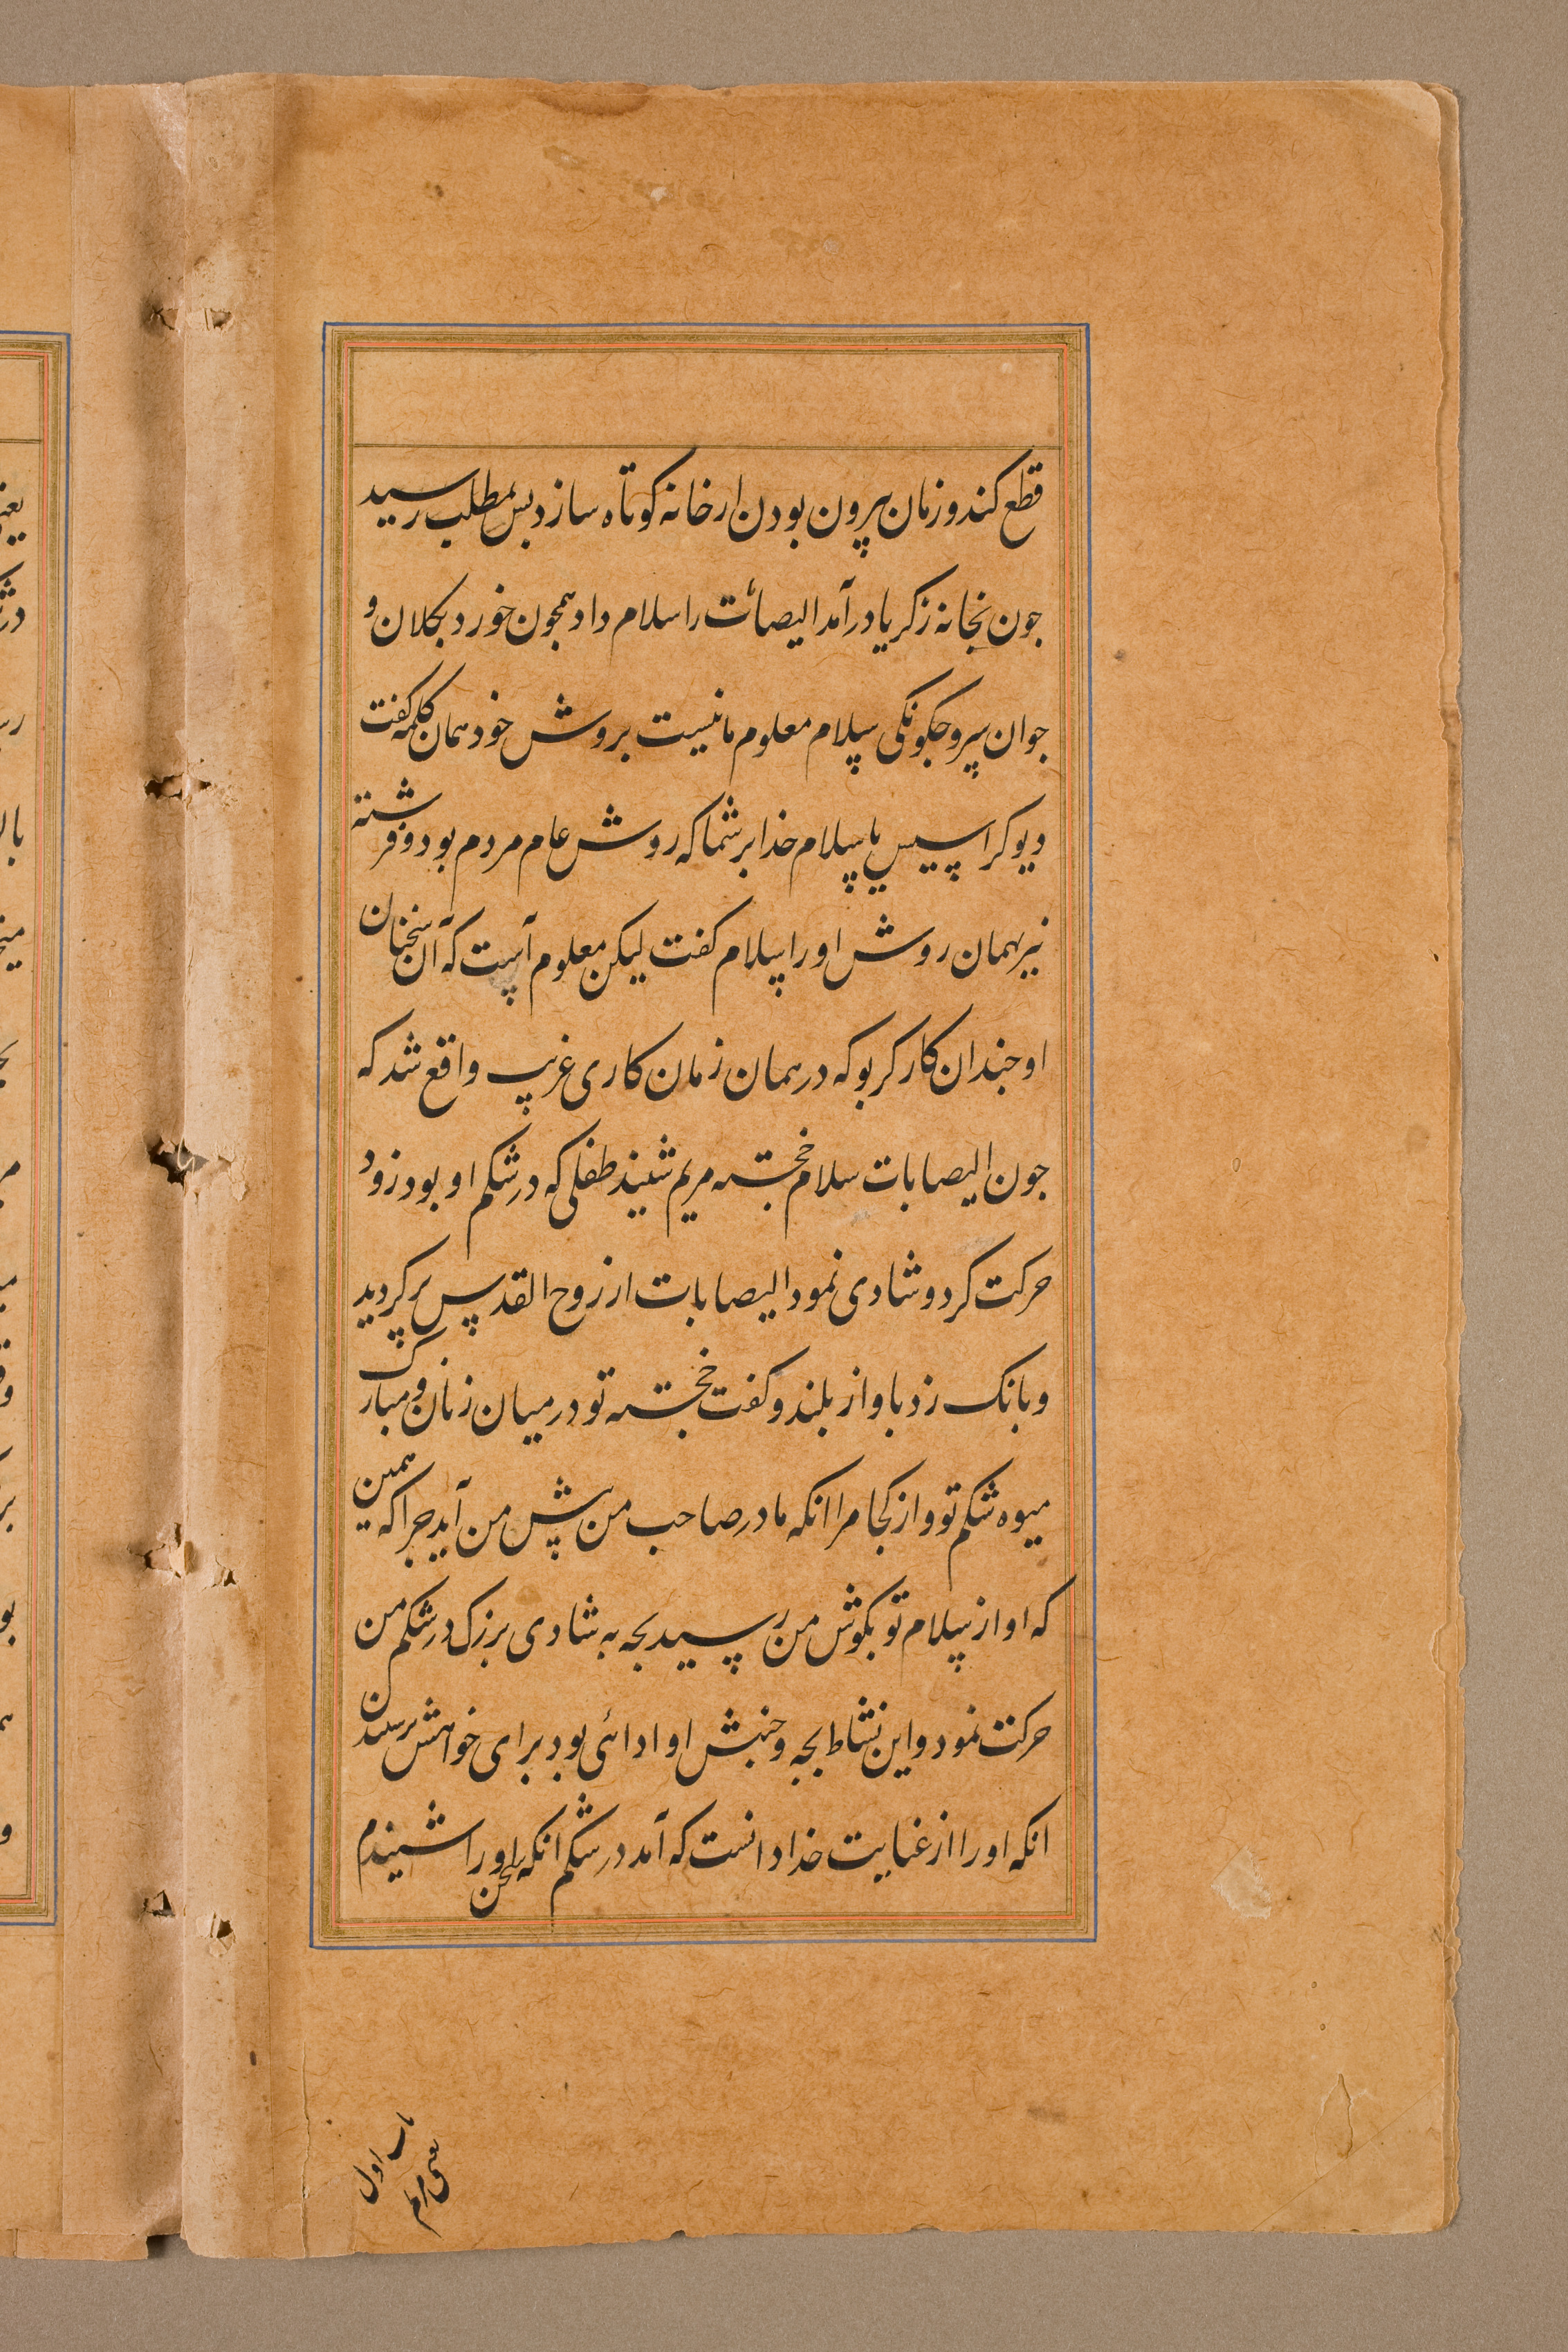 قطع کند و زمان بیرون بودن از خانه کوتاه سازد بس بمطلب رسید
جون بخانه زکریا درآمد الیصائت را سلام داد همجون خورد بکلان و
جوان بپیر و جکونکی سلام معلوم ما نیست بروش خود همان کلمه کفت
دیوکراسیس یا سلام خدا بر شما که روش عام مردم بود و فرشته
نیز بهمان روش او را سلام کفت لیکن معلوم است که آن سخنان
او جندان کارکر بو که در همان زمان کاری غریب واقع شد که
جون الیصابات سلام خجسته مریم شنید طفلی که در شکم او بود زود
حرکت کرد و شادی نمود الیصابات از روح القدس پر کردید
و بانک زد باواز بلند و کفت خجسته تو در میان زنان و مبارک
میوه شکم تو و از کجا مرا انکه مادر صاحب من پیش من آید جرا که همین
که اواز سلام تو بکوش من رسید بجه به شادی بزرک در شکم من
حرکت نمود و این نشاط بجه و جنبش او ادائی بود برای خواهش رسیدن
انکه او را از عنایت خدا دانست که آمد در شکم انکه سخن او را شنیدم
باب اول
یعنی مریم
یعنی